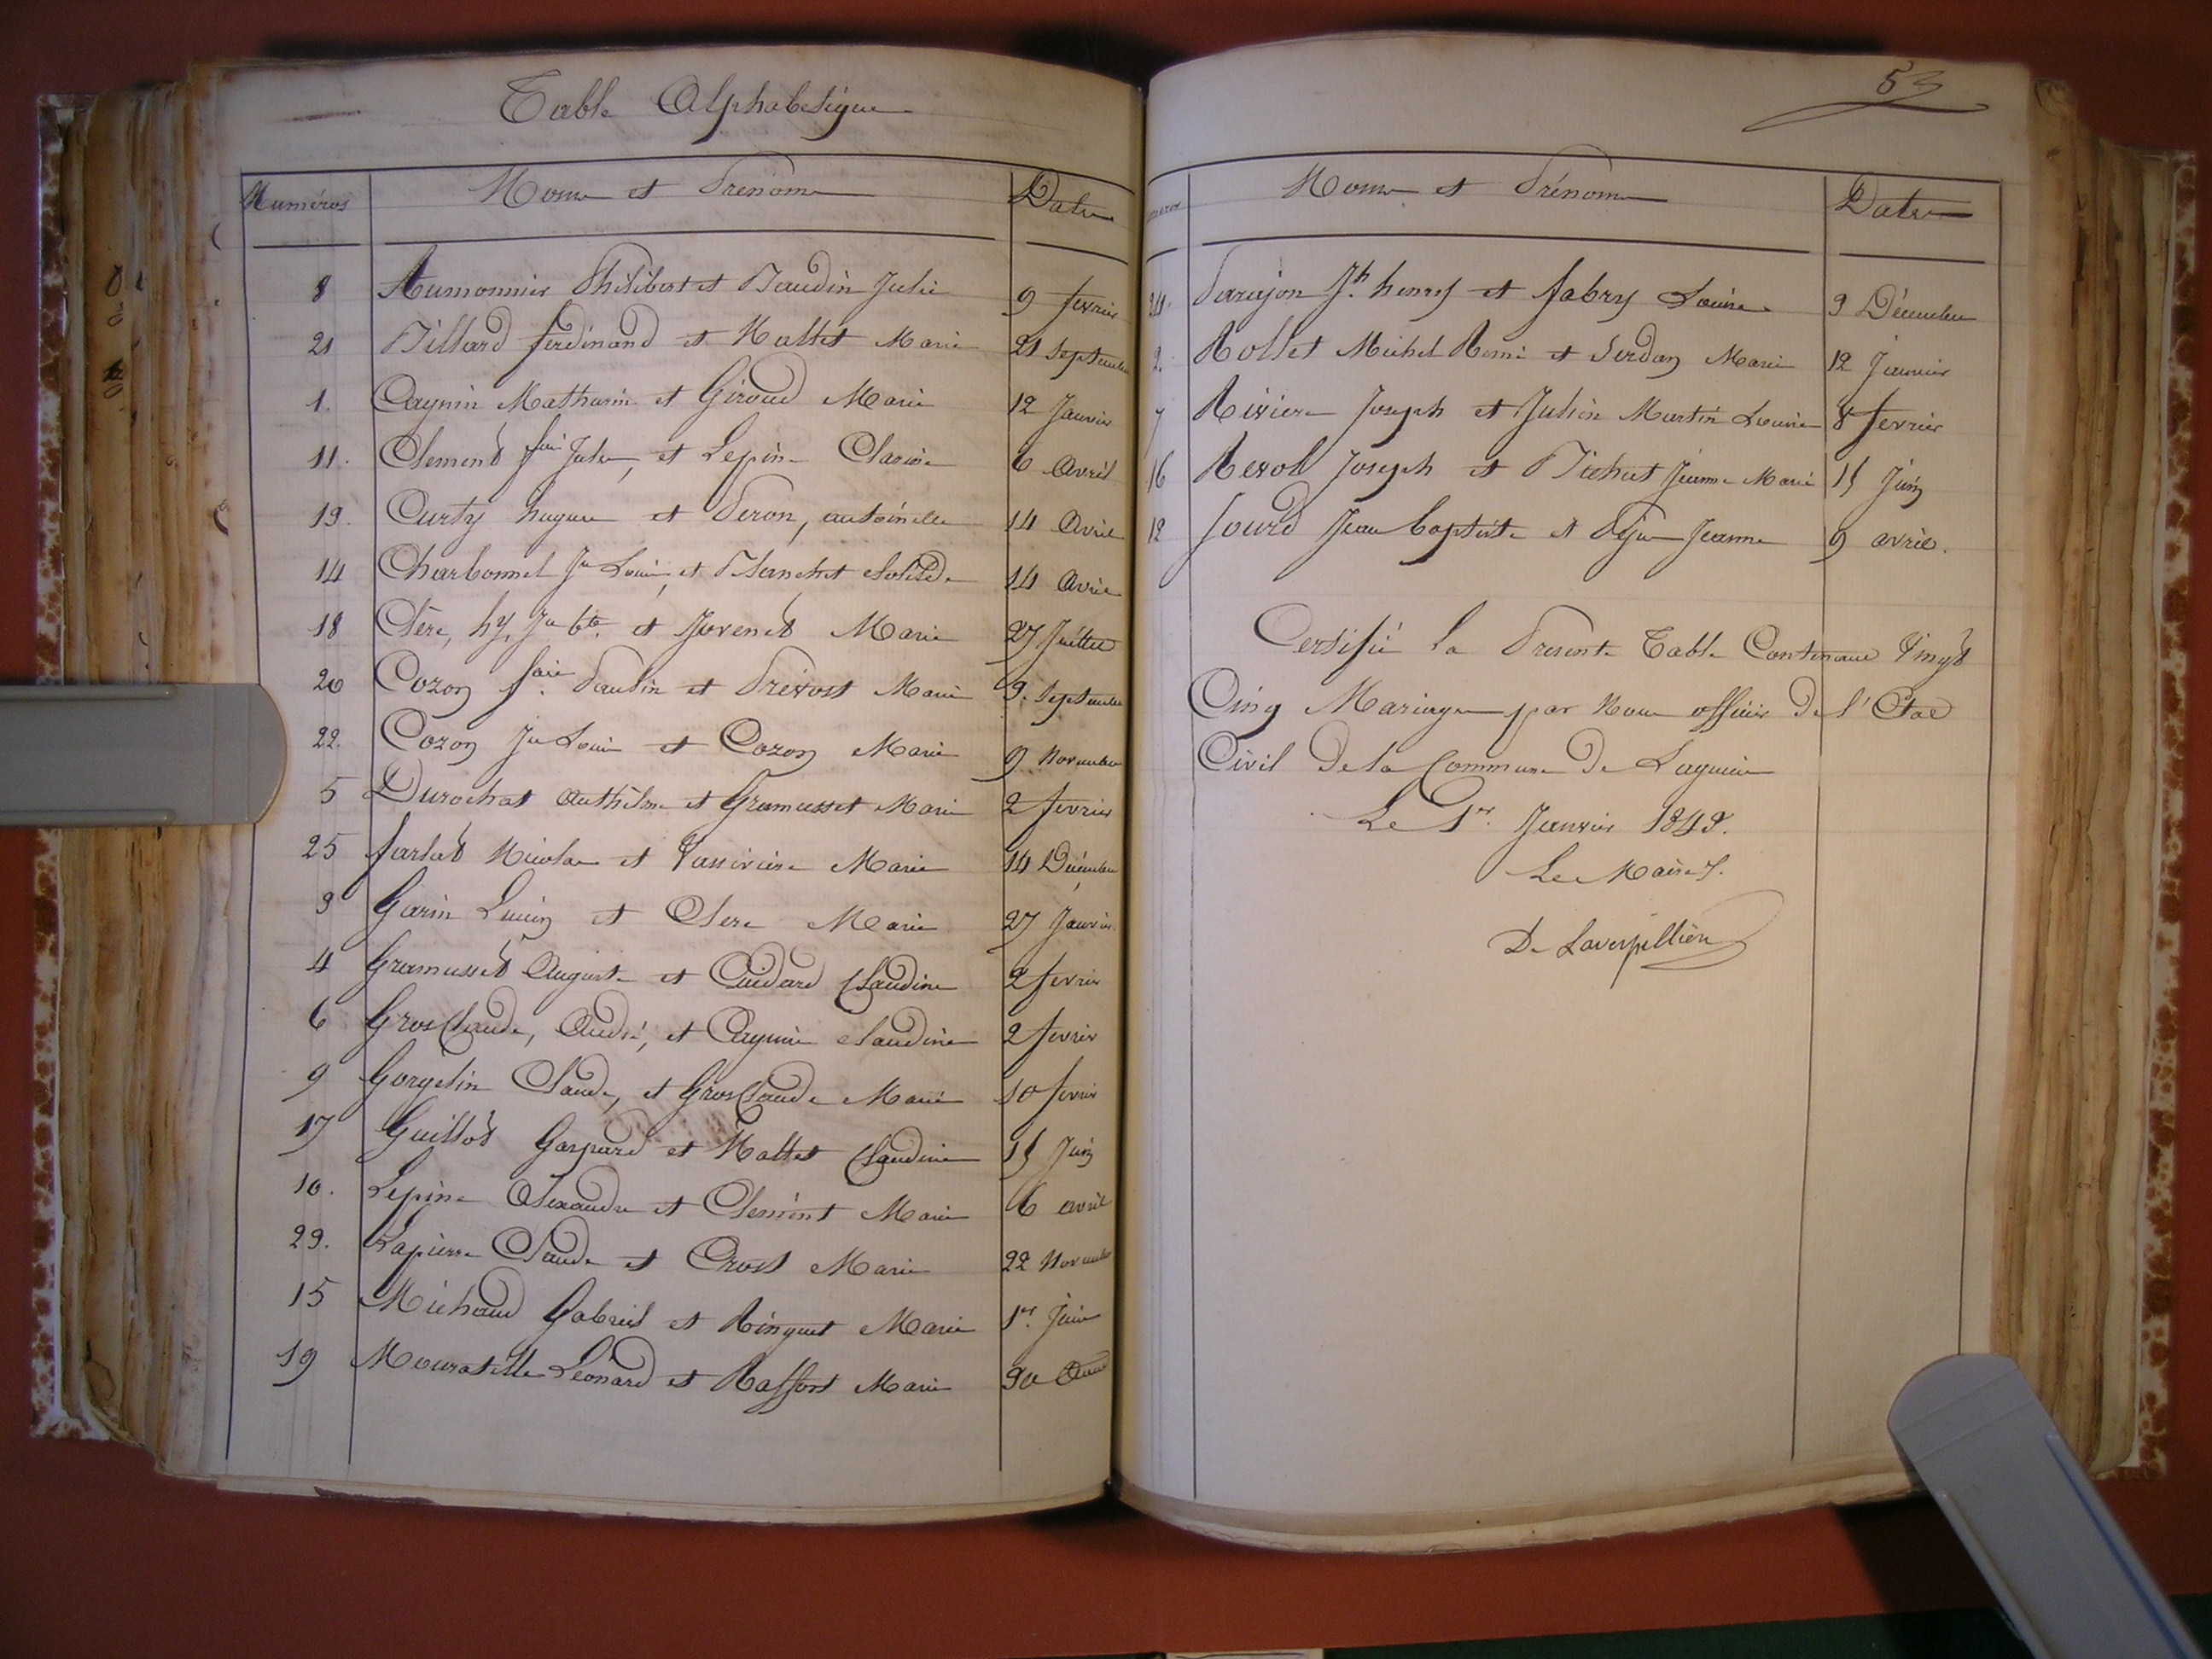 Table Alphabetique
Numéros Noms et Prénoms Dates
8 Aumonnier Philibert et Baudin Julie 9 fevrier
21 Billard ferdinand et Mallet Marie 21 Septembre
1. Cagnin Mathurin et Giroud Marie 12 Janvier
11. Clement fois Jules, et Lepine Clarisse 6 Avril
13. Curty hugues et Peron, antoinette 14 Avril
14 Charbonnet Jn Louis, et Blanchet 14 Avril
18 Clère, hy, Jn bte. et Juvenet Marie 27 Juillet
20 Cozon fois. Paulin et Prévost Marie 3. Septembre
22. Cozon Jn Louis et Cozon Marie 9 Novembre
5 Durochat Anthelme et Gramusset Marie 2 fevrier
25 farlat Nicolas et Vassiviere Marie 14 Décembre
3 Garin Lucien et Clere Marie 27 Janvier
4 Gramusset Auguste et Cuidard Claudine 2 fevrier
6 GrosClaude, André, et Cagnin Claudine 2 fevrier
9 Gorgelin Claude, et GrosClaude Marie 10 fevrier
17 Guillot Gaspard et Mallet Claudine 15 Juin
10. Lepine Alexandre et Clement Marie 6 avril
23. Lapierre Claude et Crost Marie 22 Novembre
15 Michaud Gabriel et Ringuet Marie 1er. Juin
19 Mouratille Léonard et Raffort Marie 30 Aout
53
Noms et Prénoms Dates
24. Parajon Jh. henry et fabry Louise 3 Décembre
2. Rollet Michel Remi et Serdan Marie 12 Janvier
7 Riviere Joseph et Julien Martin Louise 8 fevrier
16 Revol Joseph et Bichat Jeanne Marie 15 Juin
12 Sourd Jean baptiste et Déjus Jeanne 9 avril.
Certifié la Presente Table Contenant Vingt
Cinq Mariages par Nous officier De l'Etat
Civil De la Commune De Lagnieu
Le 1er. Janvier 1849.
Le Maire.
De Laverpillière